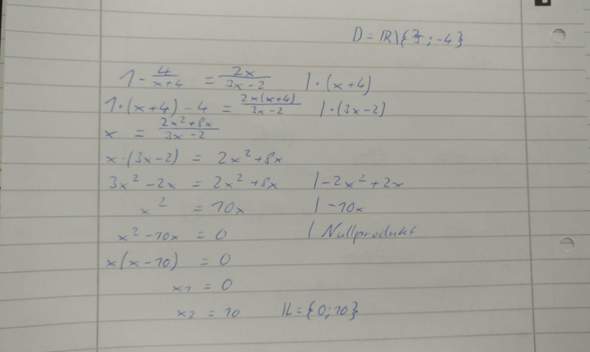 D = ℝ\{⅔ ; -4}
1 - 4/(x+4) = 2x/(3x-2) | · (x+4)
1·(x+4) - 4 = 2x(x+4)/(3x-2) | · (3x-2)
x = (2x²+8x)/(3x-2)
x·(3x-2) = 2x²+8x
3x² - 2x = 2x²+8x | -2x²+2x
x² = 10x | -10x
x² - 10x = 0 | Nullprodukt
x(x-10) = 0
x₁ = 0
x₂ = 10 𝕃 = {0; 10}